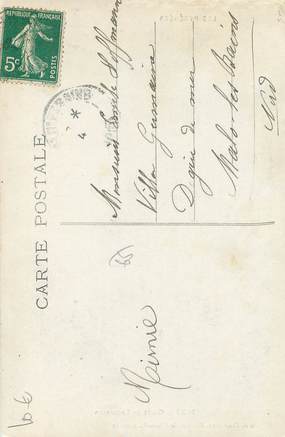 RÉPUBLIQUE FRANÇAISE
5c
POSTES
CARTE POSTALE
Monsieur Hoffmann
Villa Germaine
Digue de mer
Malo-les-Bains
Nord
Mimie